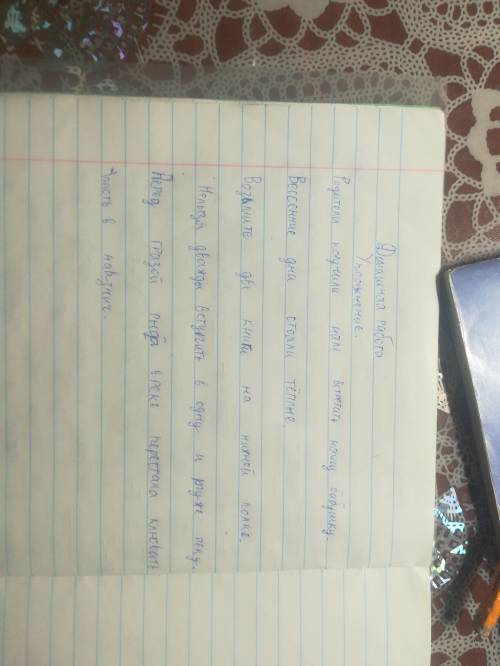 Домашняя работа
Упражнение.
Родители поручили нам встретить нашу бабушку.
Весенние дни стояли тёплые.
Возьмите две книги на нижней полке.
Нельзя дважды вступить в одну и туже реку.
Перед грозой рыба в реке перестала клювать
Упасть в навзнич.